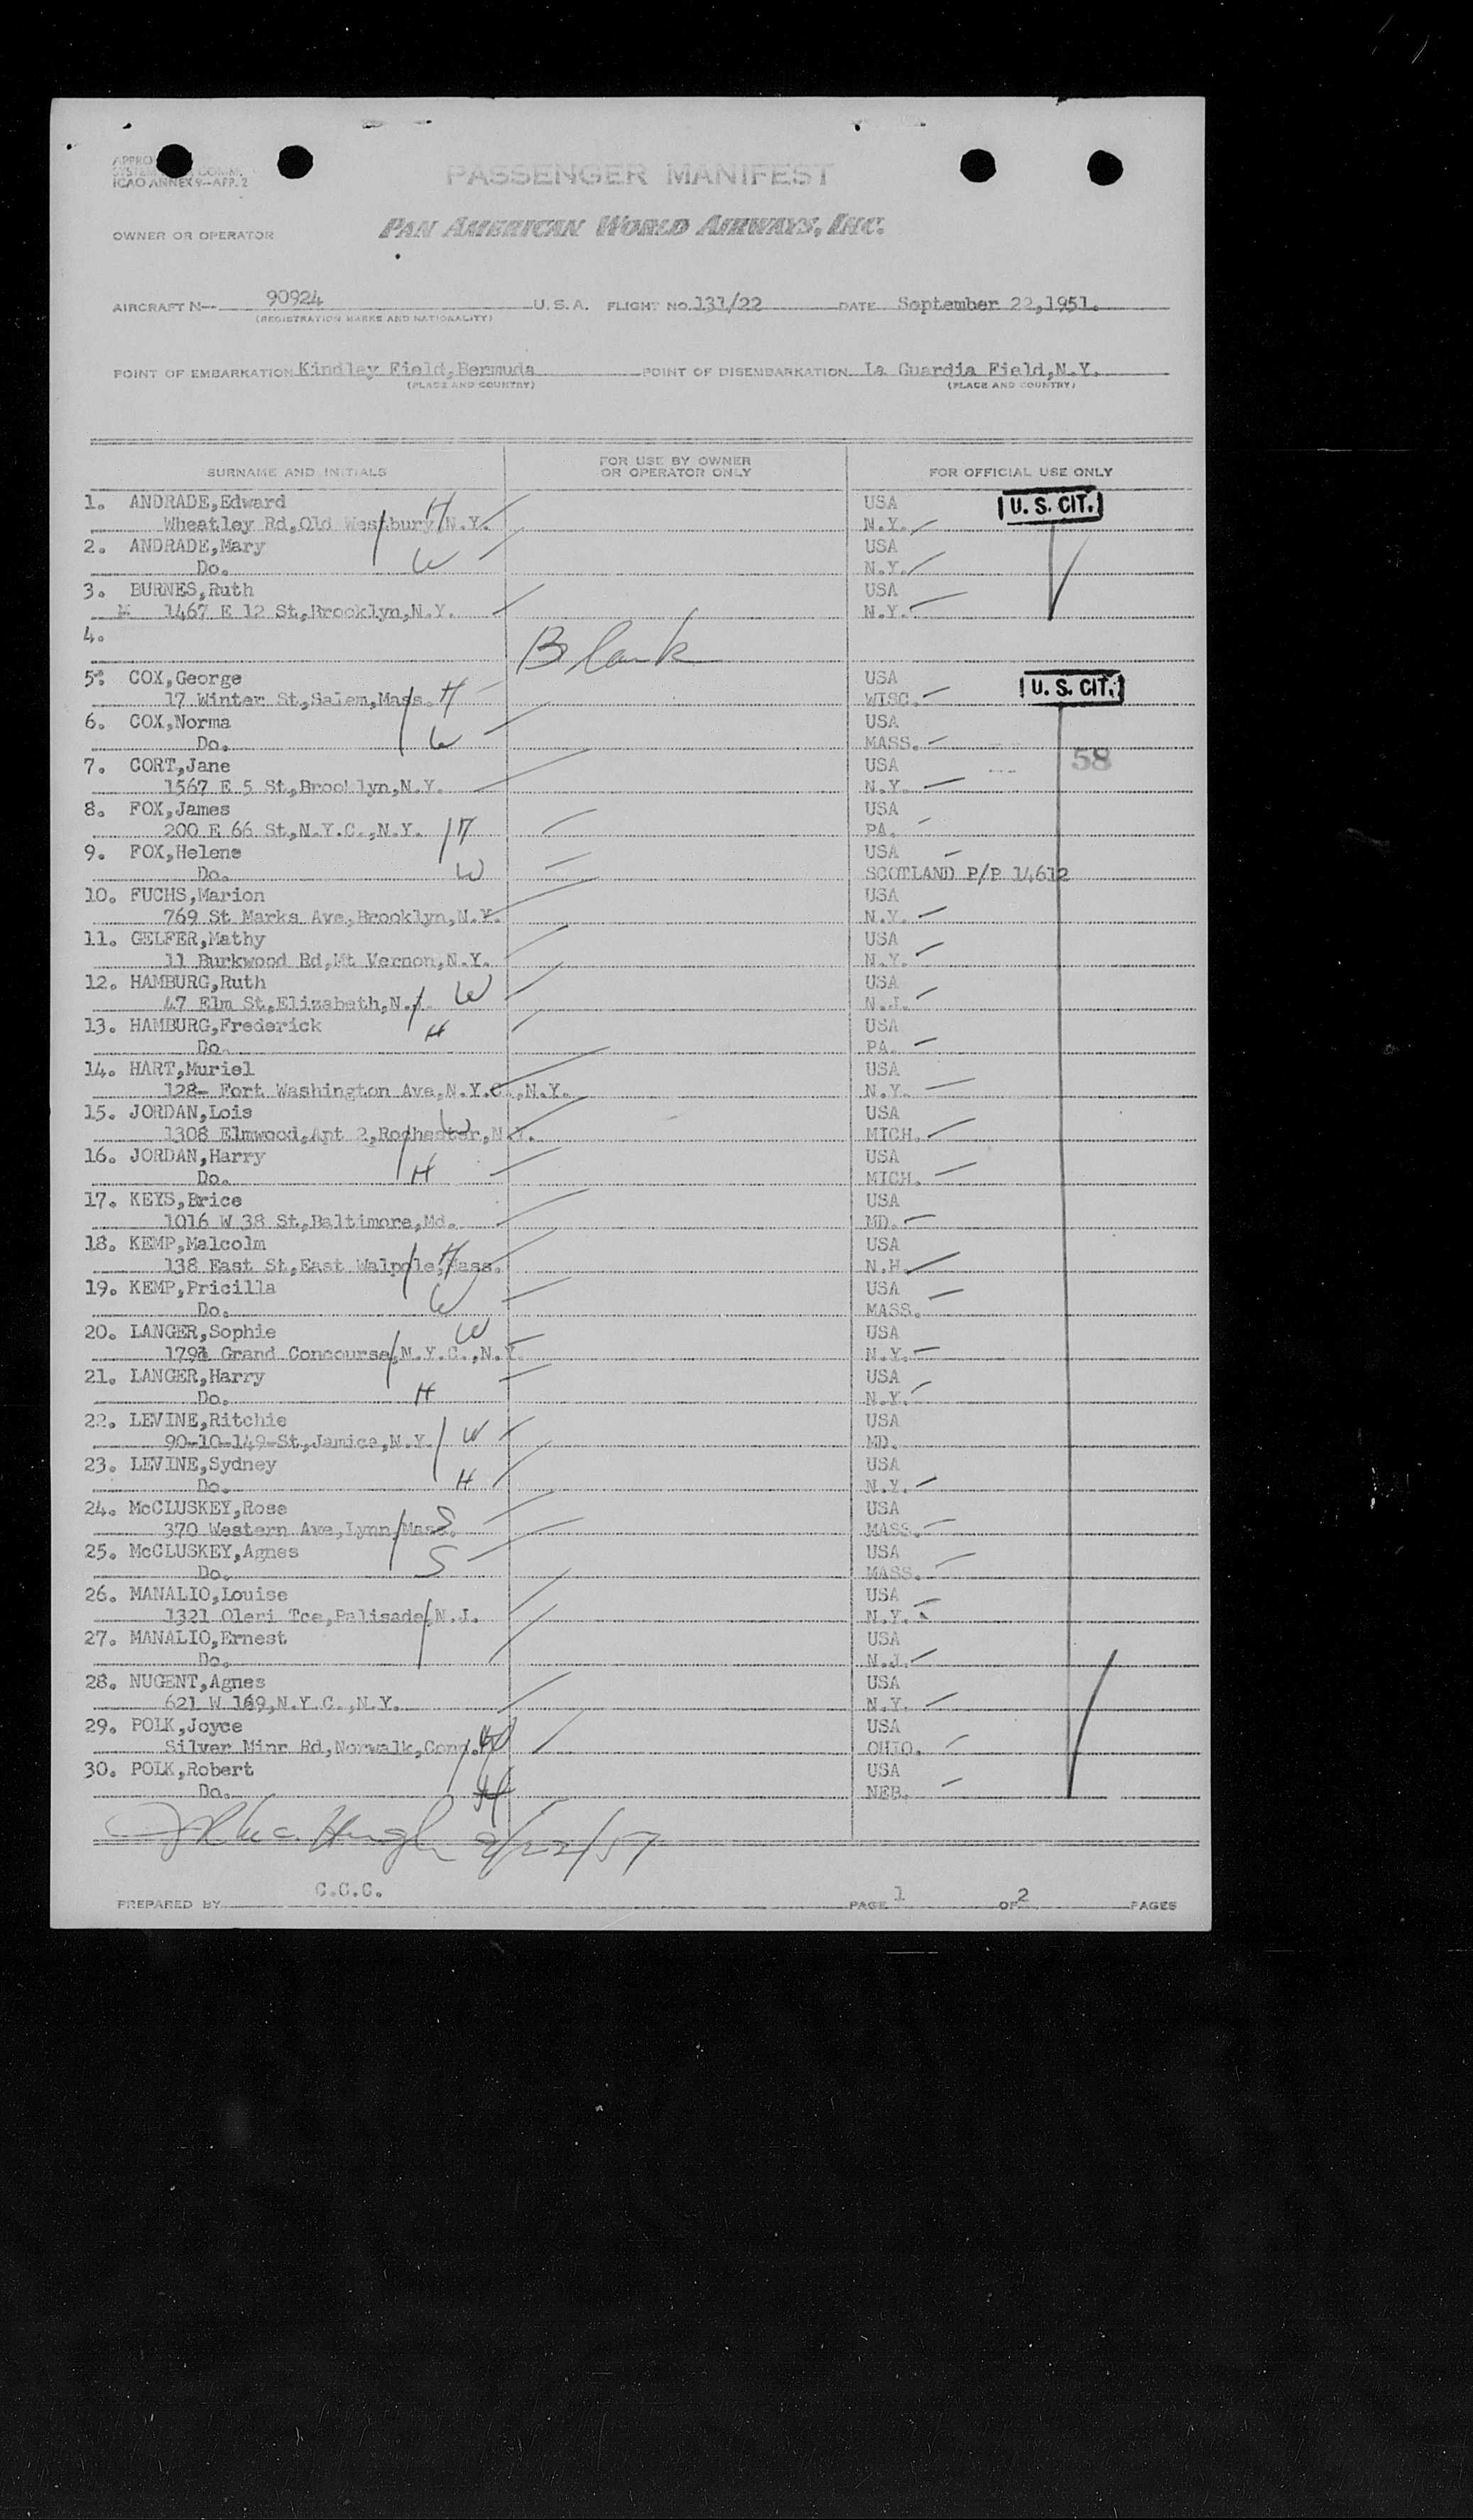 PASSENGER MANIFEST
ICAO ANNEX 9—APP. 2
OWNER OR OPERATOR PAN AMERICAN WORLD AIRWAYS, INC.
AIRCRAFT N— 90924 U.S.A. FLIGHT NO. 131/22 DATE September 22,1951.
(REGISTRATION MARKS AND NATIONALITY)
POINT OF EMBARKATION Kindley Field,Bermuda POINT OF DISEMBARKATION La Guardia Field,N.Y.
(PLACE AND COUNTRY) (PLACE AND COUNTRY)
SURNAME AND INITIALS FOR USE BY OWNER OR OPERATOR ONLY FOR OFFICIAL USE ONLY
1. ANDRADE,Edward USA U. S. CIT.
Wheatley Rd,Old Westbury,N.Y. H N.Y.
2. ANDRADE,Mary USA
Do. W N.Y.
3. BURNES,Ruth USA
M 1467 E 12 St,Brooklyn,N.Y. N.Y.
4. Blank
5. COX,George USA U. S. CIT.
17 Winter St,Salem,Mass. H WISC.
6. COX,Norma USA
Do. W MASS.
7. CORT,Jane USA 58
1567 E 5 St,Brooklyn,N.Y. N.Y.
8. FOX,James USA
200 E 66 St,N.Y.C.,N.Y. H PA.
9. FOX,Helene USA
Do. W SCOTLAND P/P 14612
10. FUCHS,Marion USA
769 St Marks Ave,Brooklyn,N.Y. N.Y.
11. GELFER,Mathy USA
11 Burkwood Rd,Mt Vernon,N.Y. N.Y.
12. HAMBURG,Ruth USA
47 Elm St,Elizabeth,N.J. W N.J.
13. HAMBURG,Frederick USA
Do. H PA.
14. HART,Muriel USA
128- Fort Washington Ave,N.Y.C.,N.Y. N.Y.
15. JORDAN,Lois USA
1308 Elmwood,Apt 2,Rochester,N.Y. W MICH.
16. JORDAN,Harry USA
Do. H MICH.
17. KEYS,Brice USA
1016 W 38 St,Baltimore,Md. MD.
18. KEMP,Malcolm USA
138 East St,East Walpole,Mass. H N.H.
19. KEMP,Pricilla USA
Do. W MASS.
20. LANGER,Sophie W USA
Grand Concourse,N.Y.C.,N.Y. N.Y.
21. LANGER,Harry USA
Do. H N.Y.
22. LEVINE,Ritchie USA
90-10-149-St,Jamica,N.Y. W MD.
23. LEVINE,Sydney USA
Do. H N.Y.
24. McCLUSKEY,Rose USA
370 Western Ave,Lynn,Mass. S MASS.
25. McCLUSKEY,Agnes USA
Do. S MASS.
26. MANALIO,Louise USA
1321 Oleri Tce,Palisade,N.J. N.Y.
27. MANALIO,Ernest USA
Do. N.J.
28. NUGENT,Agnes USA
621 W 169,N.Y.C.,N.Y. N.Y.
29. POLK,Joyce USA
Silver Minr Rd,Norwalk,Conn. W OHIO.
30. POLK,Robert USA
Do. H NEB.
9/22/51
PREPARED BY C.C.C. PAGE 1 OF 2 PAGES